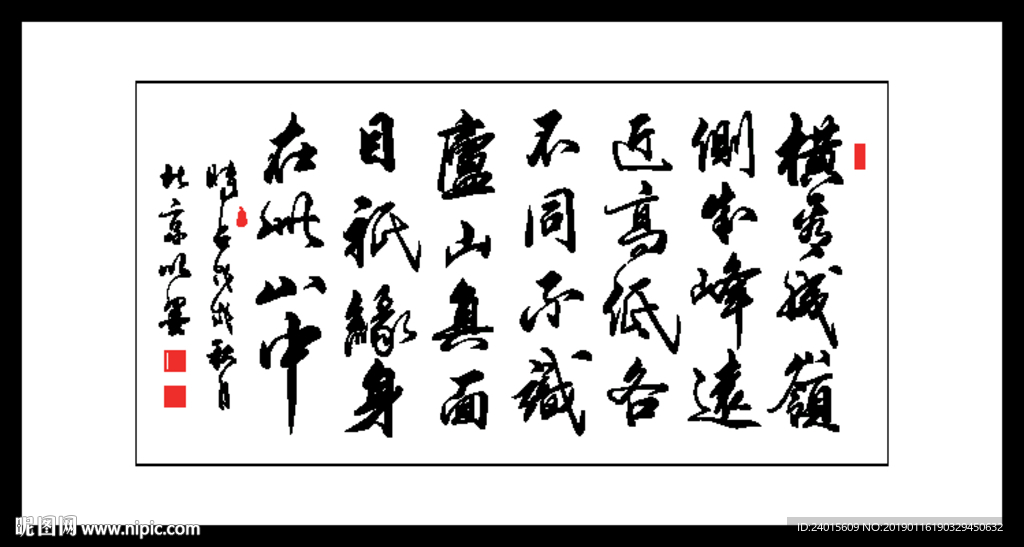 橫看成嶺
側成峰遠
近高低各
不同不識
廬山真面
目祇緣身
在此山中
時戊戌秋月
京墨
昵图网 www.nipic.com
ID:24015609 NO:20190116190329450632